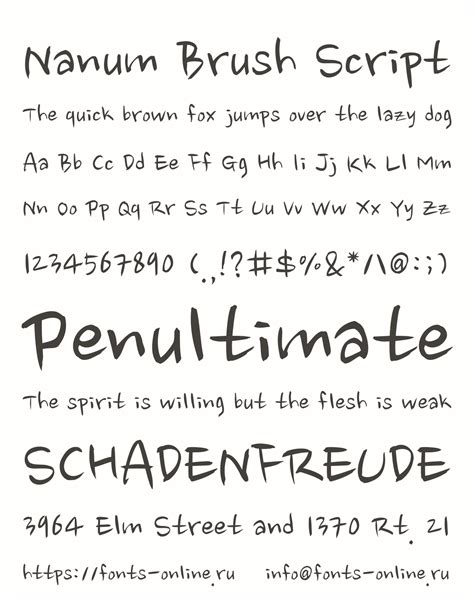 Nanum Brush Script
The quick brown fox jumps over the lazy dog
Aa Bb Cc Dd Ee Ff Gg Hh Ii Jj Kk Ll Mm
Nn Oo Pp Qq Rr Ss Tt Uu Vv Ww Xx Yy Zz
1234567890 (.,!?#$%&*/\@:;)
Penultimate
The spirit is willing but the flesh is weak
SCHADENFREUDE
3964 Elm Street and 1370 Rt. 21
https://fonts-online.ru info@fonts-online.ru